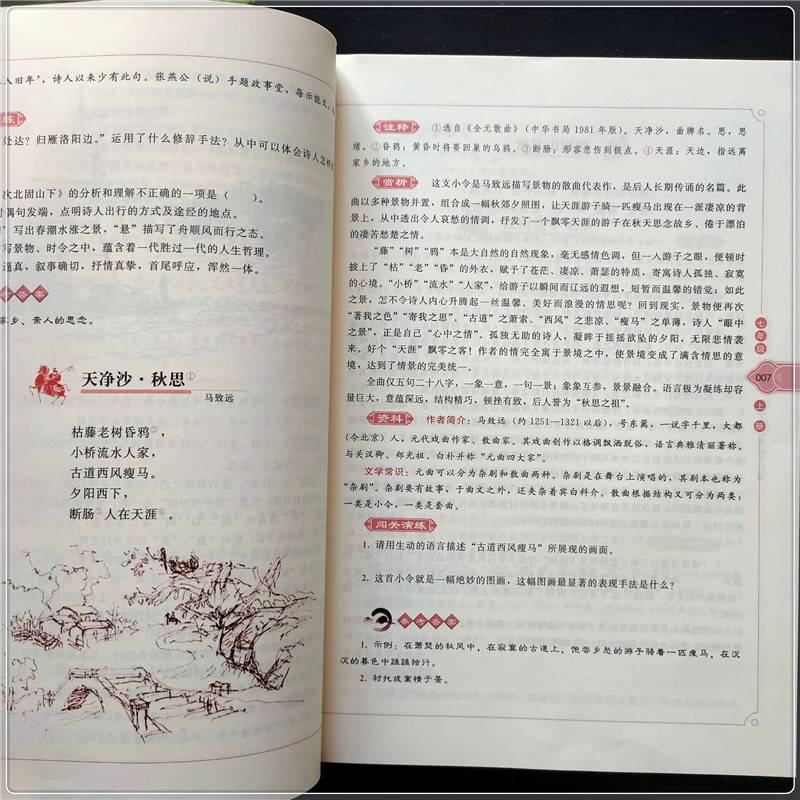 入旧年’，诗人以来少有此句。张燕公（说）手题政事堂，每示能文，
练
处达？归雁洛阳边。”运用了什么修辞手法？从中可以体会诗人怎样的
次北固山下》的分析和理解不正确的一项是（ ）。
对偶句发端，点明诗人出行的方式及途经的地点。
写出春潮水涨之景，“悬”描写了舟顺风而行之态。
写景物、时令之中，蕴含着一代胜过一代的人生哲理。
逼真，叙事确切，抒情真挚，首尾呼应，浑然一体。
考答案
乡、亲人的思念。
天净沙·秋思①
马致远
枯藤老树昏鸦②，
小桥流水人家，
古道西风瘦马。
夕阳西下，
断肠③人在天涯④。
注释 ①选自《全元散曲》（中华书局1981年版）。天净沙，曲牌名。思，思
绪。②昏鸦：黄昏时将要回巢的乌鸦。③断肠：形容悲伤到极点。④天涯：天边，指远离
家乡的地方。
赏析 这支小令是马致远描写景物的散曲代表作，是后人长期传诵的名篇。此
曲以多种景物并置，组合成一幅秋郊夕照图，让天涯游子骑一匹瘦马出现在一派凄凉的背
景上，从中透出令人哀愁的情调，抒发了一个飘零天涯的游子在秋天思念故乡、倦于漂泊
的凄苦愁楚之情。
“藤”“树”“鸦”本是大自然的自然现象，毫无感情色调，但一入游子之眼，便顿时
披上了“枯”“老”“昏”的外衣，赋予了苍茫、凄凉、萧瑟的特质，寄寓诗人孤独、寂寞
的心境。“小桥”“流水”“人家”，给游子以瞬间而辽远的遐想，短暂而温馨的错觉：如此
之景，怎不令诗人内心升腾起一丝温馨、美好而浪漫的情思呢？回到现实，景物便再次
“著我之色”“寄我之思”。“古道”之萧索、“西风”之悲凉、“瘦马”之单薄，诗人“眼中
之景”，正是自己“心中之情”。孤独无助的诗人，凝眸于摇摇欲坠的夕阳，无限悲情袭
来。好个“天涯”飘零之客！作者的情完全寓于景境之中，使景境变成了满含情思的意
境，达到了情景的完美统一。
全曲仅五句二十八字，一象一意，一句一景；象象互参，景景融合。语言极为凝练却容
量巨大，意蕴深远，结构精巧，顿挫有致，后人誉为“秋思之祖”。
资料 作者简介：马致远（约1251—1321以后），号东篱，一说字千里，大都
（今北京）人，元代戏曲作家、散曲家。其戏曲创作以格调飘洒脱俗，语言典雅清丽著称。
与关汉卿、郑光祖、白朴并称“元曲四大家”。
文学常识：元曲可以分为杂剧和散曲两种。杂剧是在舞台上演唱的，其剧本也称为
“杂剧”。杂剧要有故事，于曲文之外，还夹杂着宾白科介。散曲根据结构又可分为两类：
一类是小令，一类是套曲。
闯关演练
1. 请用生动的语言描述“古道西风瘦马”所展现的画面。
2. 这首小令就是一幅绝妙的图画，这幅图画最显著的表现手法是什么？
参考答案
1. 示例：在萧瑟的秋风中，在寂寞的古道上，饱尝乡愁的游子骑着一匹瘦马，在沉
沉的暮色中踽踽独行。
2. 衬托或寓情于景。
七年级
007
上册